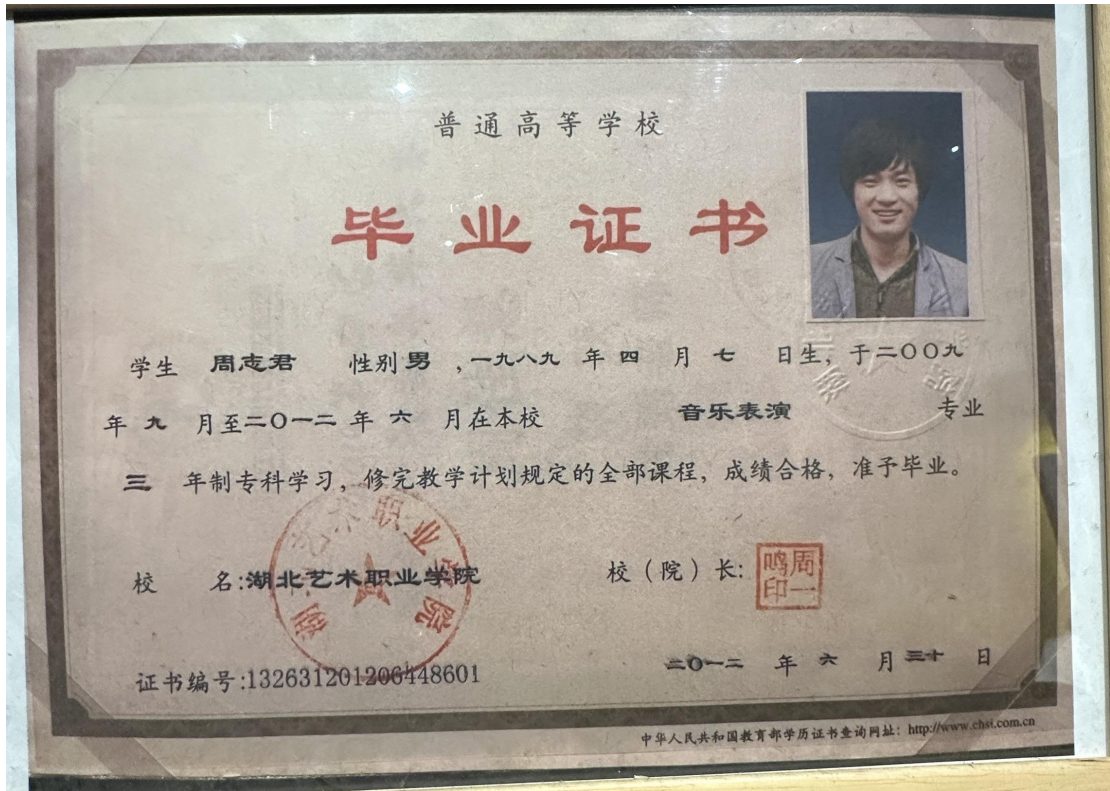 普通高等学校
毕业证书
学生 周志君 性别 男 ,一九八九 年 四 月 七 日生，于二〇〇九
年 九 月至二〇一二 年 六 月在本校 音乐表演 专业
三 年制专科学习，修完教学计划规定的全部课程，成绩合格，准予毕业。
校 名:湖北艺术职业学院
校（院）长:
周一鸣印
湖北艺术职业学院
证书编号:132631201206448601
二〇一二 年 六 月 三十 日
中华人民共和国教育部学历证书查询网址：http://www.chsi.com.cn